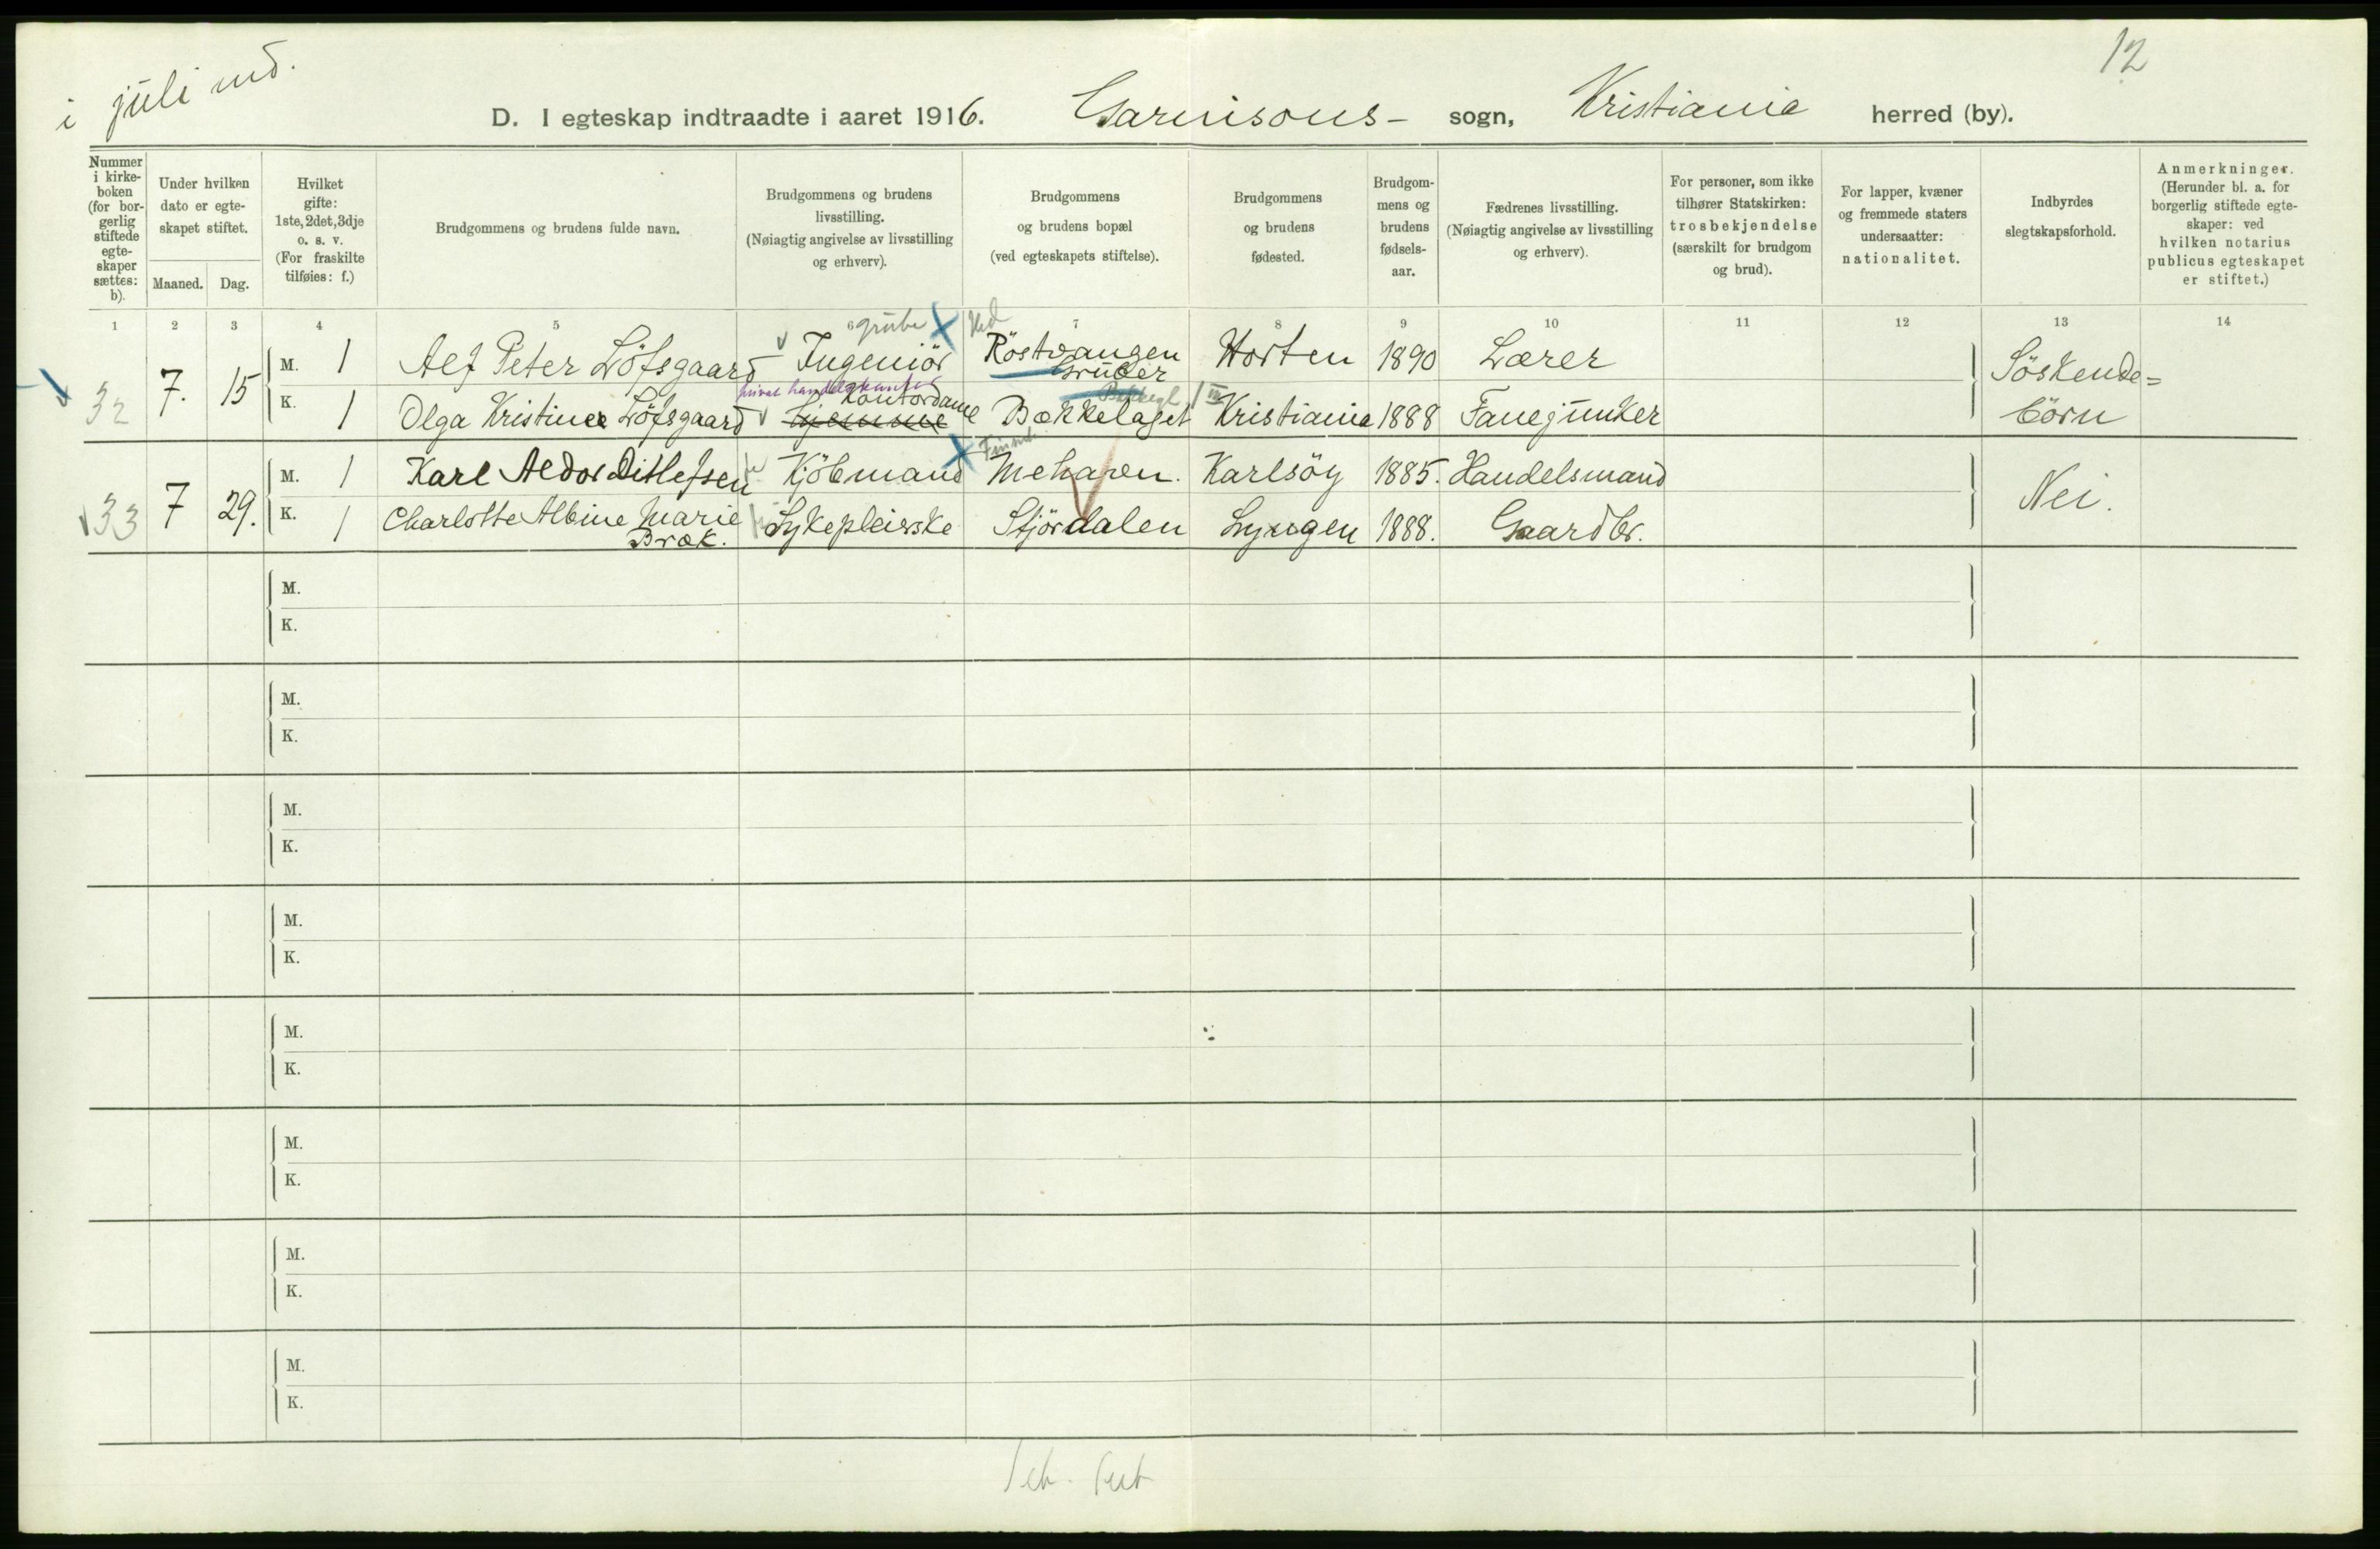 i juli md.
12
D. I egteskap indtraadte i aaret 1916. Garnisons- sogn, Kristiania herred (by).
Nummer i kirke-boken (for bor-gerlig stiftede egte-skaper sættes: b).
Under hvilken dato er egte-skapet stiftet.
Maaned. Dag.
Hvilket gifte: 1ste, 2det, 3dje o. s. v. (For fraskilte tilføies: f.)
Brudgommens og brudens fulde navn.
Brudgommens og brudens livsstilling. (Nøiagtig angivelse av livsstilling og erhverv).
Brudgommens og brudens bopæl (ved egteskapets stiftelse).
Brudgommens og brudens fødested.
Brudgom-mens og brudens fødsels-aar.
Fædrenes livsstilling. (Nøiagtig angivelse av livsstilling og erhverv).
For personer, som ikke tilhører Statskirken: trosbekjendelse (særskilt for brudgom og brud).
For lapper, kvæner og fremmede staters undersaatter: nationalitet.
Indbyrdes slegtskapsforhold.
Anmerkninger. (Herunder bl. a. for borgerlig stiftede egte-skaper: ved hvilken notarius publicus egteskapet er stiftet.)
1 2 3 4 5 6 7 8 9 10 11 12 13 14
grube Hed
32 7. 15 M. 1 Alf Peter Löfsgaard Ingeniör Röstvangen Gruber Horten 1890 Lærer Söskende=
privat handelskontor
K. 1 Olga Kristine Löfsgaard Kontordame Bækkelaget Kristiania 1888 Fanejunker börn
33 7 29. M. 1 Karl Aldor Ditlefsen Kjöbmand Mehavn. Karlsöy 1885. Handelsmand Nei.
K. 1 Charlotte Albine Marie Bræk. Sykepleierske Stjördalen Lyngen 1888. Gaardbr.
M.
K.
M.
K.
M.
K.
M.
K.
M.
K.
M.
K.
M.
K.
M.
K.